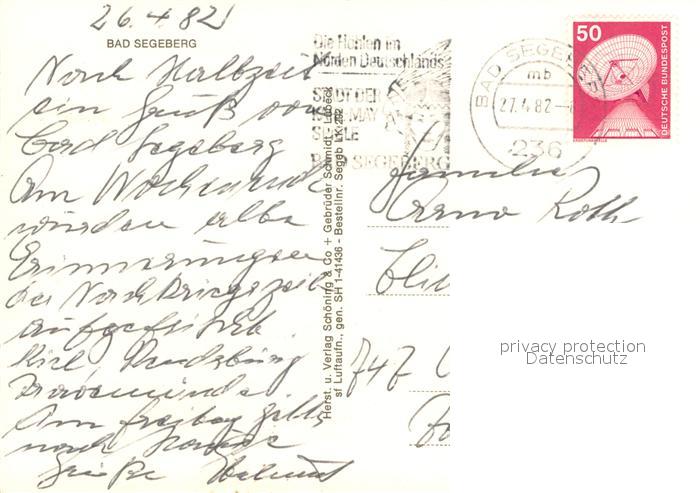 26.4.82
BAD SEGEBERG
Nach Halbzeit
ein Gruß von
Bad Segeberg
Am Wochenende
wurden alte
Erinnerungen
der Nachkriegszeit
aufgefrischt
Kiel Rendsburg
Travemünde
Am Freitag
nach Hause
Grüße Helmut
Die Höhlen im
Norden Deutschlands
STADT DER
KARL MAY
SPIELE
BAD SEGEBERG
BAD SEGEBERG
mb
27.4.82
236
50
DEUTSCHE BUNDESPOST
Herst. u. Verlag Schöning & Co + Gebrüder Schmidt - Lübeck
sf Luftaufn., gen. SH 1-41436 - Bestellnr. Segeb
Familie
Arno Roth
747
privacy protection
Datenschutz